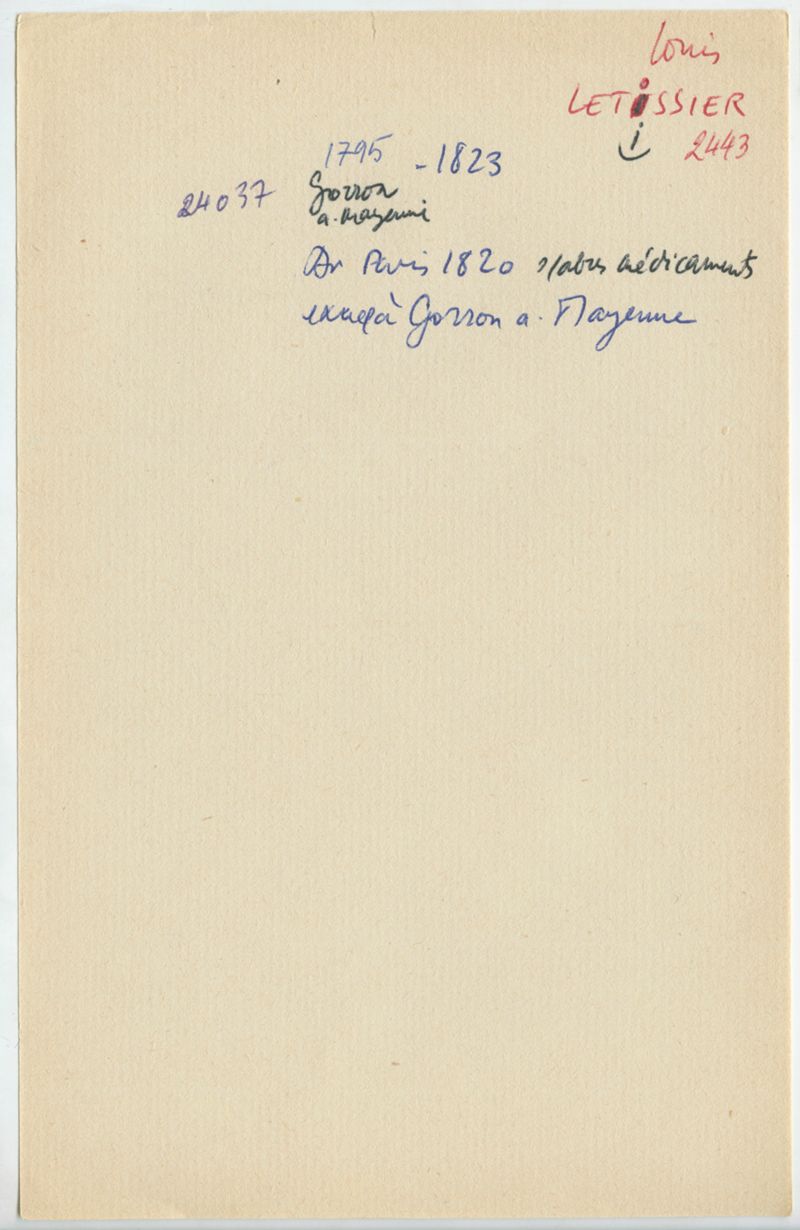 Louis
LETiSSIER
i
2443
1795 - 1823
24037 Gorron
a. Mayenne
Dr Paris 1820 s/abus médicaments
à Gorron a. Mayenne